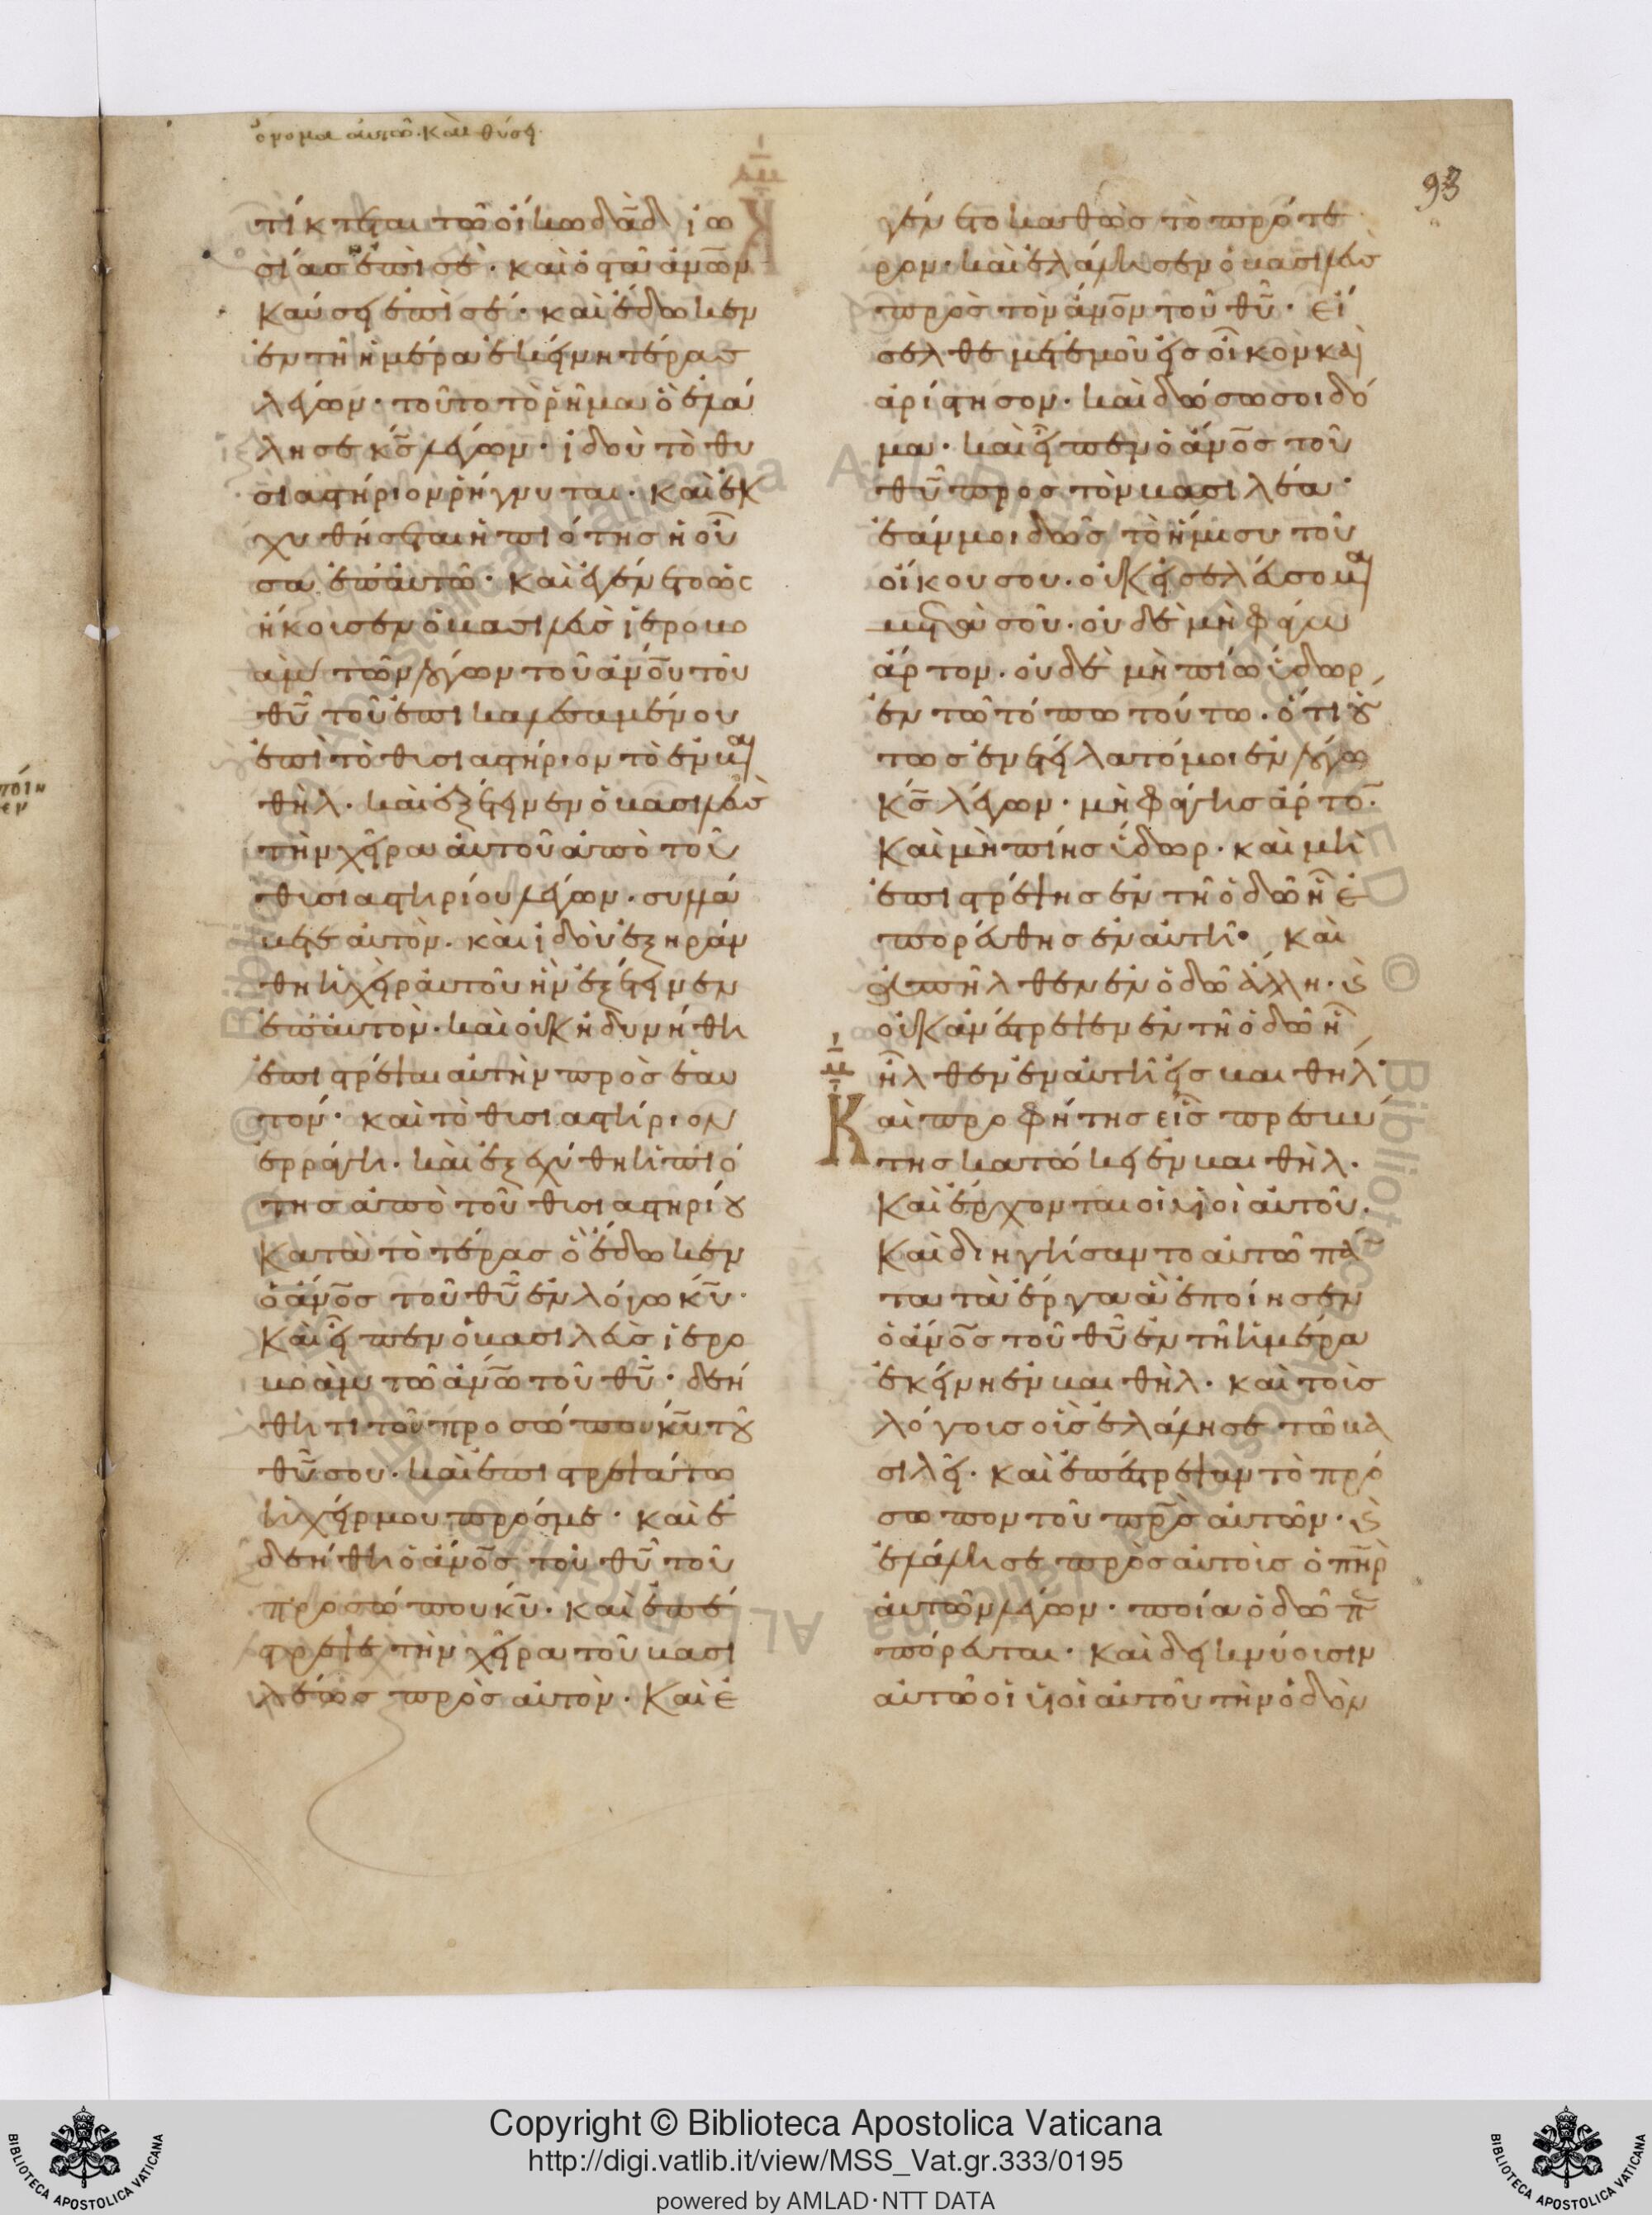 ὄνομα αὐτῶ· καὶ θύσει
93
τίκτεται τῶ οἴκω δᾱδ ἰω
σίας ἐπὶ σὲ· καὶ ὀστᾶ ἀν̅ων
καύσει ἐπὶ σέ· καὶ ἔδωκεν
ἐν τῆ ἡμέρα ἐκείνη τέρας
λέγων· τοῦτο τὸ ῥῆμα ὃ ἐλά
λησε κ̅ς λέγων· ἰδοὺ τὸ θυ
σιαστήριον ῥήγνυται· καὶ ἐκ
χυθήσεται ἡ πιότης ἡ οὖ
σα ἐπ' αὐτῶ· καὶ ἐγένετο ὡς
ἤκουσεν ὁ βασιλεὺς ἱερορο
ὰμ τῶν λόγων τοῦ ἀν̅ου τοῦ
θ̅υ τοῦ ἐπικαλεσαμένου
ἐπὶ τὸ θυσιαστήριον τὸ ἐν βαι
θὴλ· καὶ ἐξέτεινεν ὁ βασιλεὺς
τὴν χεῖρα αὐτοῦ ἀπὸ τοῦ
θυσιαστηρίου λέγων· συλλά
βετε αὐτὸν· καὶ ἰδοὺ ἐξηράν
θη ἡ χεὶρ αὐτοῦ ἣν ἐξέτεινεν
ἐπ' αὐτὸν· καὶ οὐκ ἠδυνήθη
ἐπιστρέψαι αὐτὴν πρὸς ἑαυ
τόν· καὶ τὸ θυσιαστήριον
ἐρράγη· καὶ ἐξεχύθη ἡ πιό
της ἀπὸ τοῦ θυσιαστηρίου
κατὰ τὸ τέρας ὃ ἔδωκεν
ὁ ἄν̅ος τοῦ θ̅υ ἐν λόγω κ̅υ·
καὶ εἶπεν ὁ βασιλεὺς ἱερο
βοὰμ τῶ ἀν̅ω τοῦ θ̅υ· δεή
θητι τοῦ προσώπου κ̅υ τοῦ
θ̅υ σου· καὶ ἐπιστρεψάτω
ἡ χείρ μου πρός με· καὶ ἐ
δεήθη ὁ ἄν̅ος τοῦ θ̅υ τοῦ
προσώπου κ̅υ· καὶ ἐπέ
στρεψε τὴν χεῖρα τοῦ βασι
λέως πρὸς αὐτὸν· καὶ ἐ
γένετο καθὼς τὸ πρότε
ρον· καὶ ἐλάλησεν ὁ βασιλεὺς
πρὸς τὸν ἄν̅ον τοῦ θ̅υ· εἴ
σελθε μετ' ἐμοῦ εἰς οἶκον καὶ
ἀρίστησον· καὶ δώσω σοι δό
μα· καὶ εἶπεν ὁ ἄν̅ος τοῦ
θ̅υ πρὸς τὸν βασιλέα·
ἐάν μοι δῶς τὸ ἥμισυ τοῦ
οἴκου σου· οὐκ εἰσελεύσομαι
μετὰ σοῦ· οὐδὲ μὴ φάγω
ἄρτον· οὐδὲ μὴ πίω ὕδωρ
ἐν τῶ τόπω τούτω· ὅτι οὕ
τως ἐνετείλατό μοι ἐν λόγω
κ̅ς λέγων· μὴ φάγης ἄρτο̅·
καὶ μὴ πίης ὕδωρ· καὶ μὴ
ἐπιστρέψης ἐν τῆ ὁδῶ ἧ ἐ
πορεύθης ἐν αὐτῆ· καὶ
ἀπῆλθεν ἐν ὁδῶ ἄλλη· καὶ
οὐκ ἀνέστρεψεν ἐν τῆ ὁδῶ ἧ
ἦλθεν ἐν αὐτῆ εἰς βαιθήλ·
Καὶ προφήτης εἷς πρεσβύ
της κατώκει ἐν βαιθὴλ·
καὶ ἔρχονται οἱ υἱοὶ αὐτοῦ·
καὶ διηγήσαντο αὐτῶ πά
τα τὰ ἔργα ἃ ἐποίησεν
ὁ ἄν̅ος τοῦ θ̅υ ἐν τῆ ἡμέρα
ἐκείνη ἐν βαιθὴλ· καὶ τοὺς
λόγους οὓς ἐλάλησε τῶ βα
σιλεῖ· καὶ ἐπέστρεψαν τὸ πρό
σωπον τοῦ π̅ρς αὐτῶν· καὶ
ἐλάλησε πρὸς αὐτοὺς ὁ π̅ηρ
αὐτῶν λέγων· ποία ὁδῶ πε
πόρευται· καὶ δεικνύουσιν
αὐτῶ οἱ υἱοὶ αὐτοῦ τὴν ὁδὸν
Copyright © Biblioteca Apostolica Vaticana
http://digi.vatlib.it/view/MSS_Vat.gr.333/0195
powered by AMLAD·NTT DATA
BIBLIOTECA APOSTOLICA VATICANA
BIBLIOTECA APOSTOLICA VATICANA